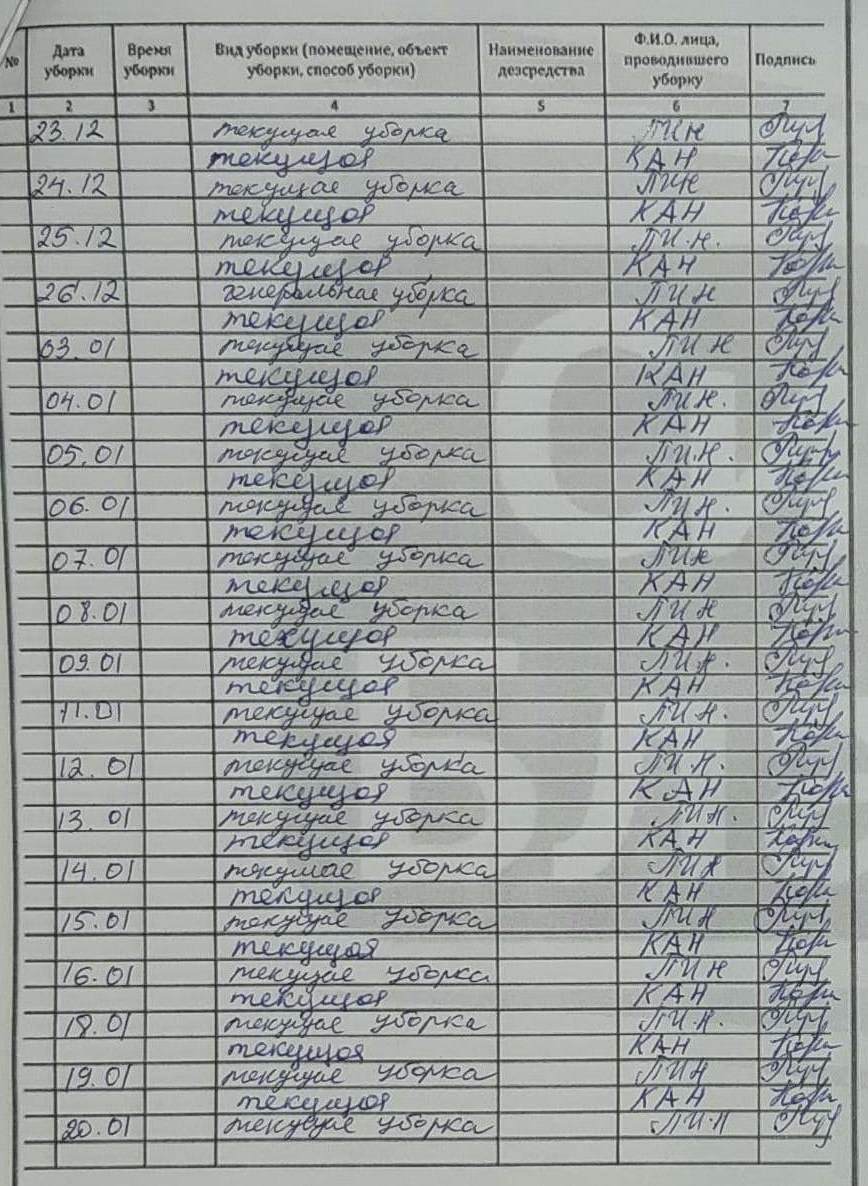 № Дата уборки Время уборки Вид уборки (помещение, объект уборки, способ уборки) Наименование дезсредства Ф.И.О. лица, проводившего уборку Подпись
1 2 3 4 5 6 7
23.12 текущая уборка ПИН
текущая КАН
24.12 текущая уборка ПИН
текущая КАН
25.12 текущая уборка П.И.Н.
текущая КАН
26.12 генеральная уборка ПИН
текущая КАН
03.01 текущая уборка ПИН
текущая КАН
04.01 текущая уборка ПИН.
текущая КАН
05.01 текущая уборка ПИН.
текущая КАН
06.01 текущая уборка ПИН.
текущая КАН
07.01 текущая уборка ПИН
текущая КАН
08.01 текущая уборка ПИН
текущая КАН
09.01 текущая уборка ПИН.
текущая КАН
11.01 текущая уборка ПИН.
текущая КАН
12.01 текущая уборка ПИН.
текущая КАН
13.01 текущая уборка ПИН.
текущая КАН
14.01 текущая уборка ПИН
текущая КАН
15.01 текущая уборка ПИН
текущая КАН
16.01 текущая уборка ПИН
текущая КАН
18.01 текущая уборка ПИН.
текущая КАН
19.01 текущая уборка ПИН
текущая КАН
20.01 текущая уборка ПИН